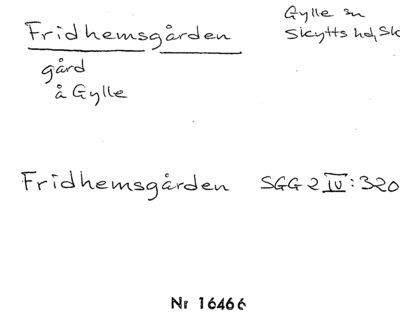 Fridhemsgården
Gylle sn
Skytts hd, Sk
gård
å Gylle
Fridhemsgården SGG 2 IV: 320
Nr 16466